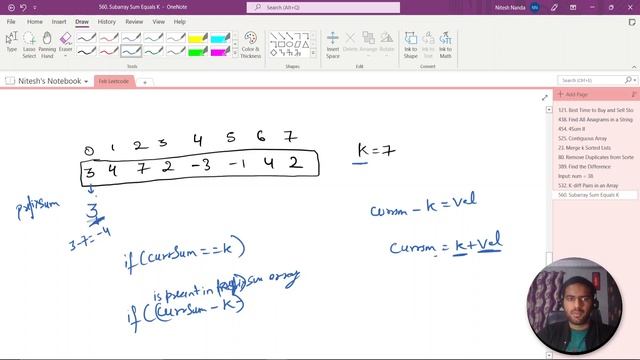 560. Subarray Sum Equals K - OneNote
Search (Alt+Q)
Nitesh Nanda
NN
File Home Insert Draw History Review View Help
Undo Redo Type Panning Hand Lasso Select Insert Space Eraser Color & Thickness Shapes Ink to Shape Ink to Text Ink to Math
Nitesh's Notebook Feb Leetcode
Add Page
121. Best Time to Buy and Sell Sto
438. Find All Anagrams in a String
454. 4Sum II
525. Contiguous Array
23. Merge k Sorted Lists
80. Remove Duplicates from Sorte
389. Find the Difference
Input: num = 38
532. K-diff Pairs in an Array
560. Subarray Sum Equals K
0 1 2 3 4 5 6 7
3 4 7 2 -3 -1 4 2
k = 7
prefixsum
3
3-7=-4
currsm - k = val
currsm = k + val
if (currSum == k)
is present in prefixsum array
if ((currSum - k)